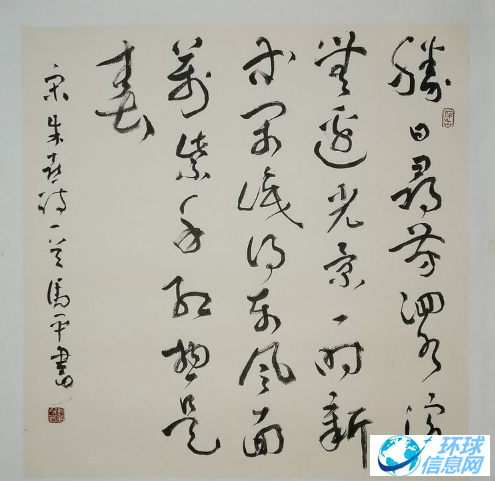 勝日尋芳泗水濱
無邊光景一時新
等閑識得東風面
萬紫千紅總是
春
宋朱熹詩一首馬平書
环球
信息网